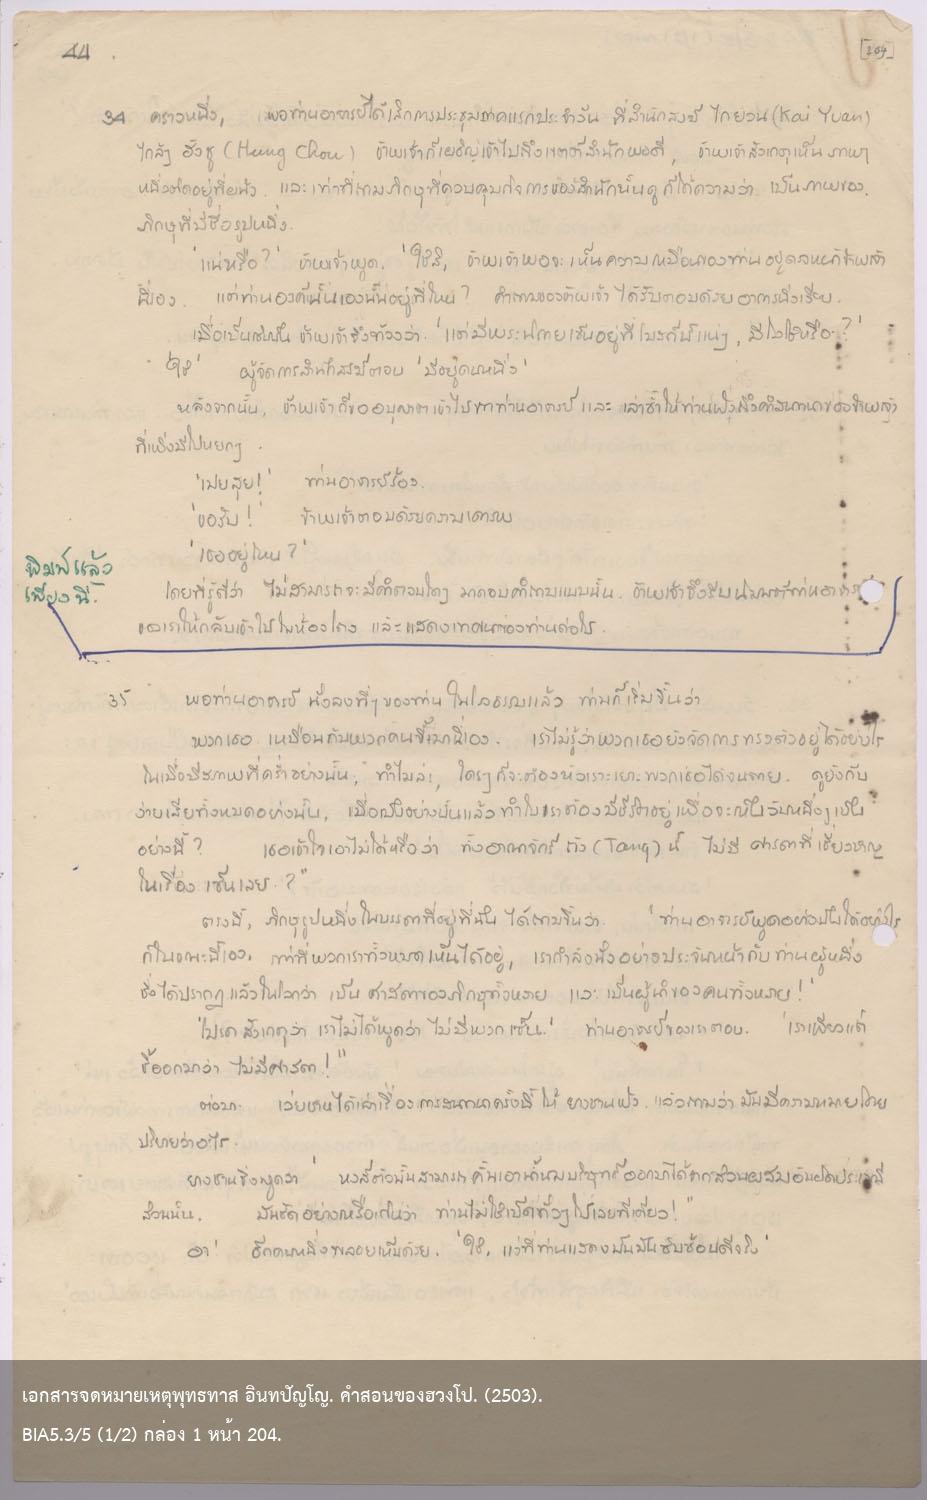 44
[204]
34 คราวหนึ่ง, เมื่อท่านอาจารย์ได้เลิกการประชุมภาคแรกประจำวัน ที่สำนักสงฆ์ ไกยวน (Kai Yuan)
ใกล้ๆ ฮังชู (Hung Chou) ข้าพเจ้าก็เผชิญเข้าไปถึงเขตต์สำนักพอดี, ข้าพเจ้าสังเกตุเห็นภาพๆ
หนึ่งติดอยู่ที่ผนัง และเท่าที่ถามภิกษุที่ควบคุมกิจการของสำนักนั้นดู ก็ได้ความว่า เป็นภาพของ
ภิกษุที่มีชื่อรูปหนึ่ง.
'แน่หรือ?' ข้าพเจ้าพูด. 'ใช่สิ, ข้าพเจ้าพอจะเห็นความเหมือนของท่านอยู่ต่อหน้าข้าพเจ้า
นี่เอง. แต่ท่านองค์นั้นเองนั้นอยู่ที่ไหน? คำถามของข้าพเจ้าได้รับตอบด้วยอาการนิ่งเงียบ.
เมื่อเป็นเช่นนั้น ข้าพเจ้าจึงท้วงว่า 'แต่มีพระนิกายเซ็นอยู่ที่โบสถ์นี้แน่ๆ, มิใช่หรือ?'
'ใช่' ผู้จัดการสำนักสงฆ์ตอบ 'มีอยู่คนหนึ่ง'
หลังจากนั้น, ข้าพเจ้าก็ขออนุญาตเข้าไปหาท่านอาจารย์ และ เล่าซ้ำให้ท่านฟังถึงคำสนทนาของข้าพเจ้า
ที่เพิ่งมีไปหยกๆ.
'เปยสุย!' ท่านอาจารย์ร้อง.
'ขอรับ!' ข้าพเจ้าตอบด้วยความเคารพ
'เธออยู่ไหน?'
พิมพ์แล้ว
เพียงนี้.
โดยที่รู้ดีว่า ไม่สามารถจะมีคำตอบใดๆ มาตอบคำถามแบบนั้น. ข้าพเจ้าจึงรีบนิมนต์ท่านอาจารย์
ของเราให้กลับเข้าไปในห้องโถง และแสดงเทศนาของท่านต่อไป.
35 พอท่านอาจารย์ นั่งลงที่ๆ ของท่าน ในโรงธรรมแล้ว ท่านก็เริ่มขึ้นว่า
พวกเธอ เหมือนกับพวกคนขี้เมานี่เอง. เราไม่รู้ว่าพวกเธอยังจัดการทรงตัวอยู่ได้อย่างไร
ในเมื่อมีสภาพที่คร่ำอย่างนั้น, ทำไมล่ะ, ใครๆ ก็จะต้องหัวเราะเยาะพวกเธอได้จนตาย. ดูยังกับ
ง่ายเสียทั้งหมดอย่างนั้น, เมื่อเป็นอย่างนั้นแล้ว ทำไมเราต้องมีชีวิตอยู่ เพื่อจะเห็นวันหนึ่งๆ เป็น
อย่างนี้? เธอเข้าใจเอาไม่ได้หรือว่า ทั้งอาณาจักร์ ถัง (Tang) นี้ ไม่มี ศาสดาที่เชี่ยวชาญ
ในเรื่อง เซ็นเลย.?"
ตรงนี้, ภิกษุรูปหนึ่งในบรรดาที่อยู่ที่นั้น ได้ถามขึ้นว่า. 'ท่านอาจารย์พูดอย่างนั้นได้อย่างไร
ก็ในขณะนี้เอง, เท่าที่พวกเราทั้งหมดเห็นได้อยู่, เรากำลังนั่งอย่างประจันหน้ากับท่านผู้หนึ่ง
ซึ่งได้ปรากฏแล้วในโลกว่า เป็น ศาสดาของภิกษุทั้งหลาย และ เป็นผู้นำของคนทั้งหลาย!'
'โปรดสังเกตุว่า เราไม่ได้พูดว่า ไม่มีพวกเซ็น.' ท่านอาจารย์ของเราตอบ. 'เราเพียงแต่
ชี้ออกมาว่า ไม่มีศาสดา!"
ต่อมา เว่ยชานได้เล่าเรื่องการสนทนาครั้งนี้ ให้ ยางชานฟัง. แล้วถามว่า มันมีความหมายโดย
ปริยายว่าอะไร.
ยางชานจึงพูดว่า 'หงส์ตัวนั้นสามารถคั้นเอาน้ำนมบริสุทธิ์ออกมาได้จากส่วนผสมอันปิดประเภทนี้
ส่วนนั้น. มันชัดอย่างเหลือเกินว่า ท่านไม่ใช่เป็ดทั่วๆ ไปเลยทีเดียว!"
'อา' อีกคนหนึ่งพลอยเห็นด้วย. 'ใช่, แง่ที่ท่านแสดงนั้นมันซับซ้อนดีจริง'
เอกสารจดหมายเหตุพุทธทาส อินทปัญโญ. คำสอนของฮวงโป. (2503).
BIA5.3/5 (1/2) กล่อง 1 หน้า 204.